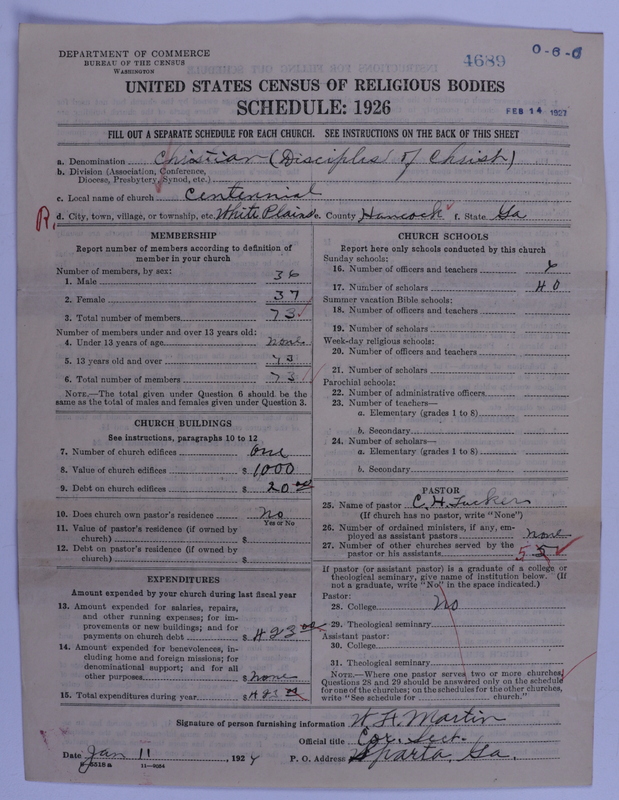 DEPARTMENT OF COMMERCE
BUREAU OF THE CENSUS
WASHINGTON
4689
0-6-0
UNITED STATES CENSUS OF RELIGIOUS BODIES
SCHEDULE: 1926
FEB 14 1927
FILL OUT A SEPARATE SCHEDULE FOR EACH CHURCH. SEE INSTRUCTIONS ON THE BACK OF THIS SHEET
a. Denomination Christian (Disciples of Christ)
b. Division (Association, Conference,
Diocese, Presbytery, Synod, etc.)
c. Local name of church Centennial
R. d. City, town, village, or township, etc. White Plains e. County Hancock f. State Ga
MEMBERSHIP
Report number of members according to definition of
member in your church
Number of members, by sex:
1. Male 36
2. Female 37
3. Total number of members 73
Number of members under and over 13 years old:
4. Under 13 years of age none
5. 13 years old and over 73
6. Total number of members 73
NOTE.—The total given under Question 6 should be the
same as the total of males and females given under Question 3.
CHURCH BUILDINGS
See instructions, paragraphs 10 to 12
7. Number of church edifices one
8. Value of church edifices $ 1000
9. Debt on church edifices $ 20 00
10. Does church own pastor's residence No
Yes or No
11. Value of pastor's residence (if owned by
church) $
12. Debt on pastor's residence (if owned by
church) $
EXPENDITURES
Amount expended by your church during last fiscal year
13. Amount expended for salaries, repairs,
and other running expenses; for im-
provements or new buildings; and for
payments on church debt $ 423 00
14. Amount expended for benevolences, in-
cluding home and foreign missions; for
denominational support; and for all
other purposes $ None
15. Total expenditures during year $ 423 00
CHURCH SCHOOLS
Report here only schools conducted by this church
Sunday schools:
16. Number of officers and teachers 6
17. Number of scholars 40
Summer vacation Bible schools:
18. Number of officers and teachers
19. Number of scholars
Week-day religious schools:
20. Number of officers and teachers
21. Number of scholars
Parochial schools:
22. Number of administrative officers
23. Number of teachers—
a. Elementary (grades 1 to 8)
b. Secondary
24. Number of scholars—
a. Elementary (grades 1 to 8)
b. Secondary
PASTOR
25. Name of pastor C. H. Tucker
(If church has no pastor, write "None")
26. Number of ordained ministers, if any, em-
ployed as assistant pastors none
27. Number of other churches served by the
pastor or his assistants 5
If pastor (or assistant pastor) is a graduate of a college or
theological seminary, give name of institution below. (If
not a graduate, write "No" in the space indicated.)
Pastor:
28. College No
29. Theological seminary
Assistant pastor:
30. College
31. Theological seminary
NOTE.—Where one pastor serves two or more churches,
Questions 28 and 29 should be answered only on the schedule
for one of the churches; on the schedules for the other churches,
write "See schedule for church."
Signature of person furnishing information Martin
Official title Cor. Sect.
Date Jan 11, 192 P. O. Address Sparta, Ga.
8-5518 a 11-9264